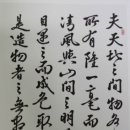 夫天地之間物各
所有雖一毫而
清風與山間之明
目遇之而成色取
是造物者之無盡